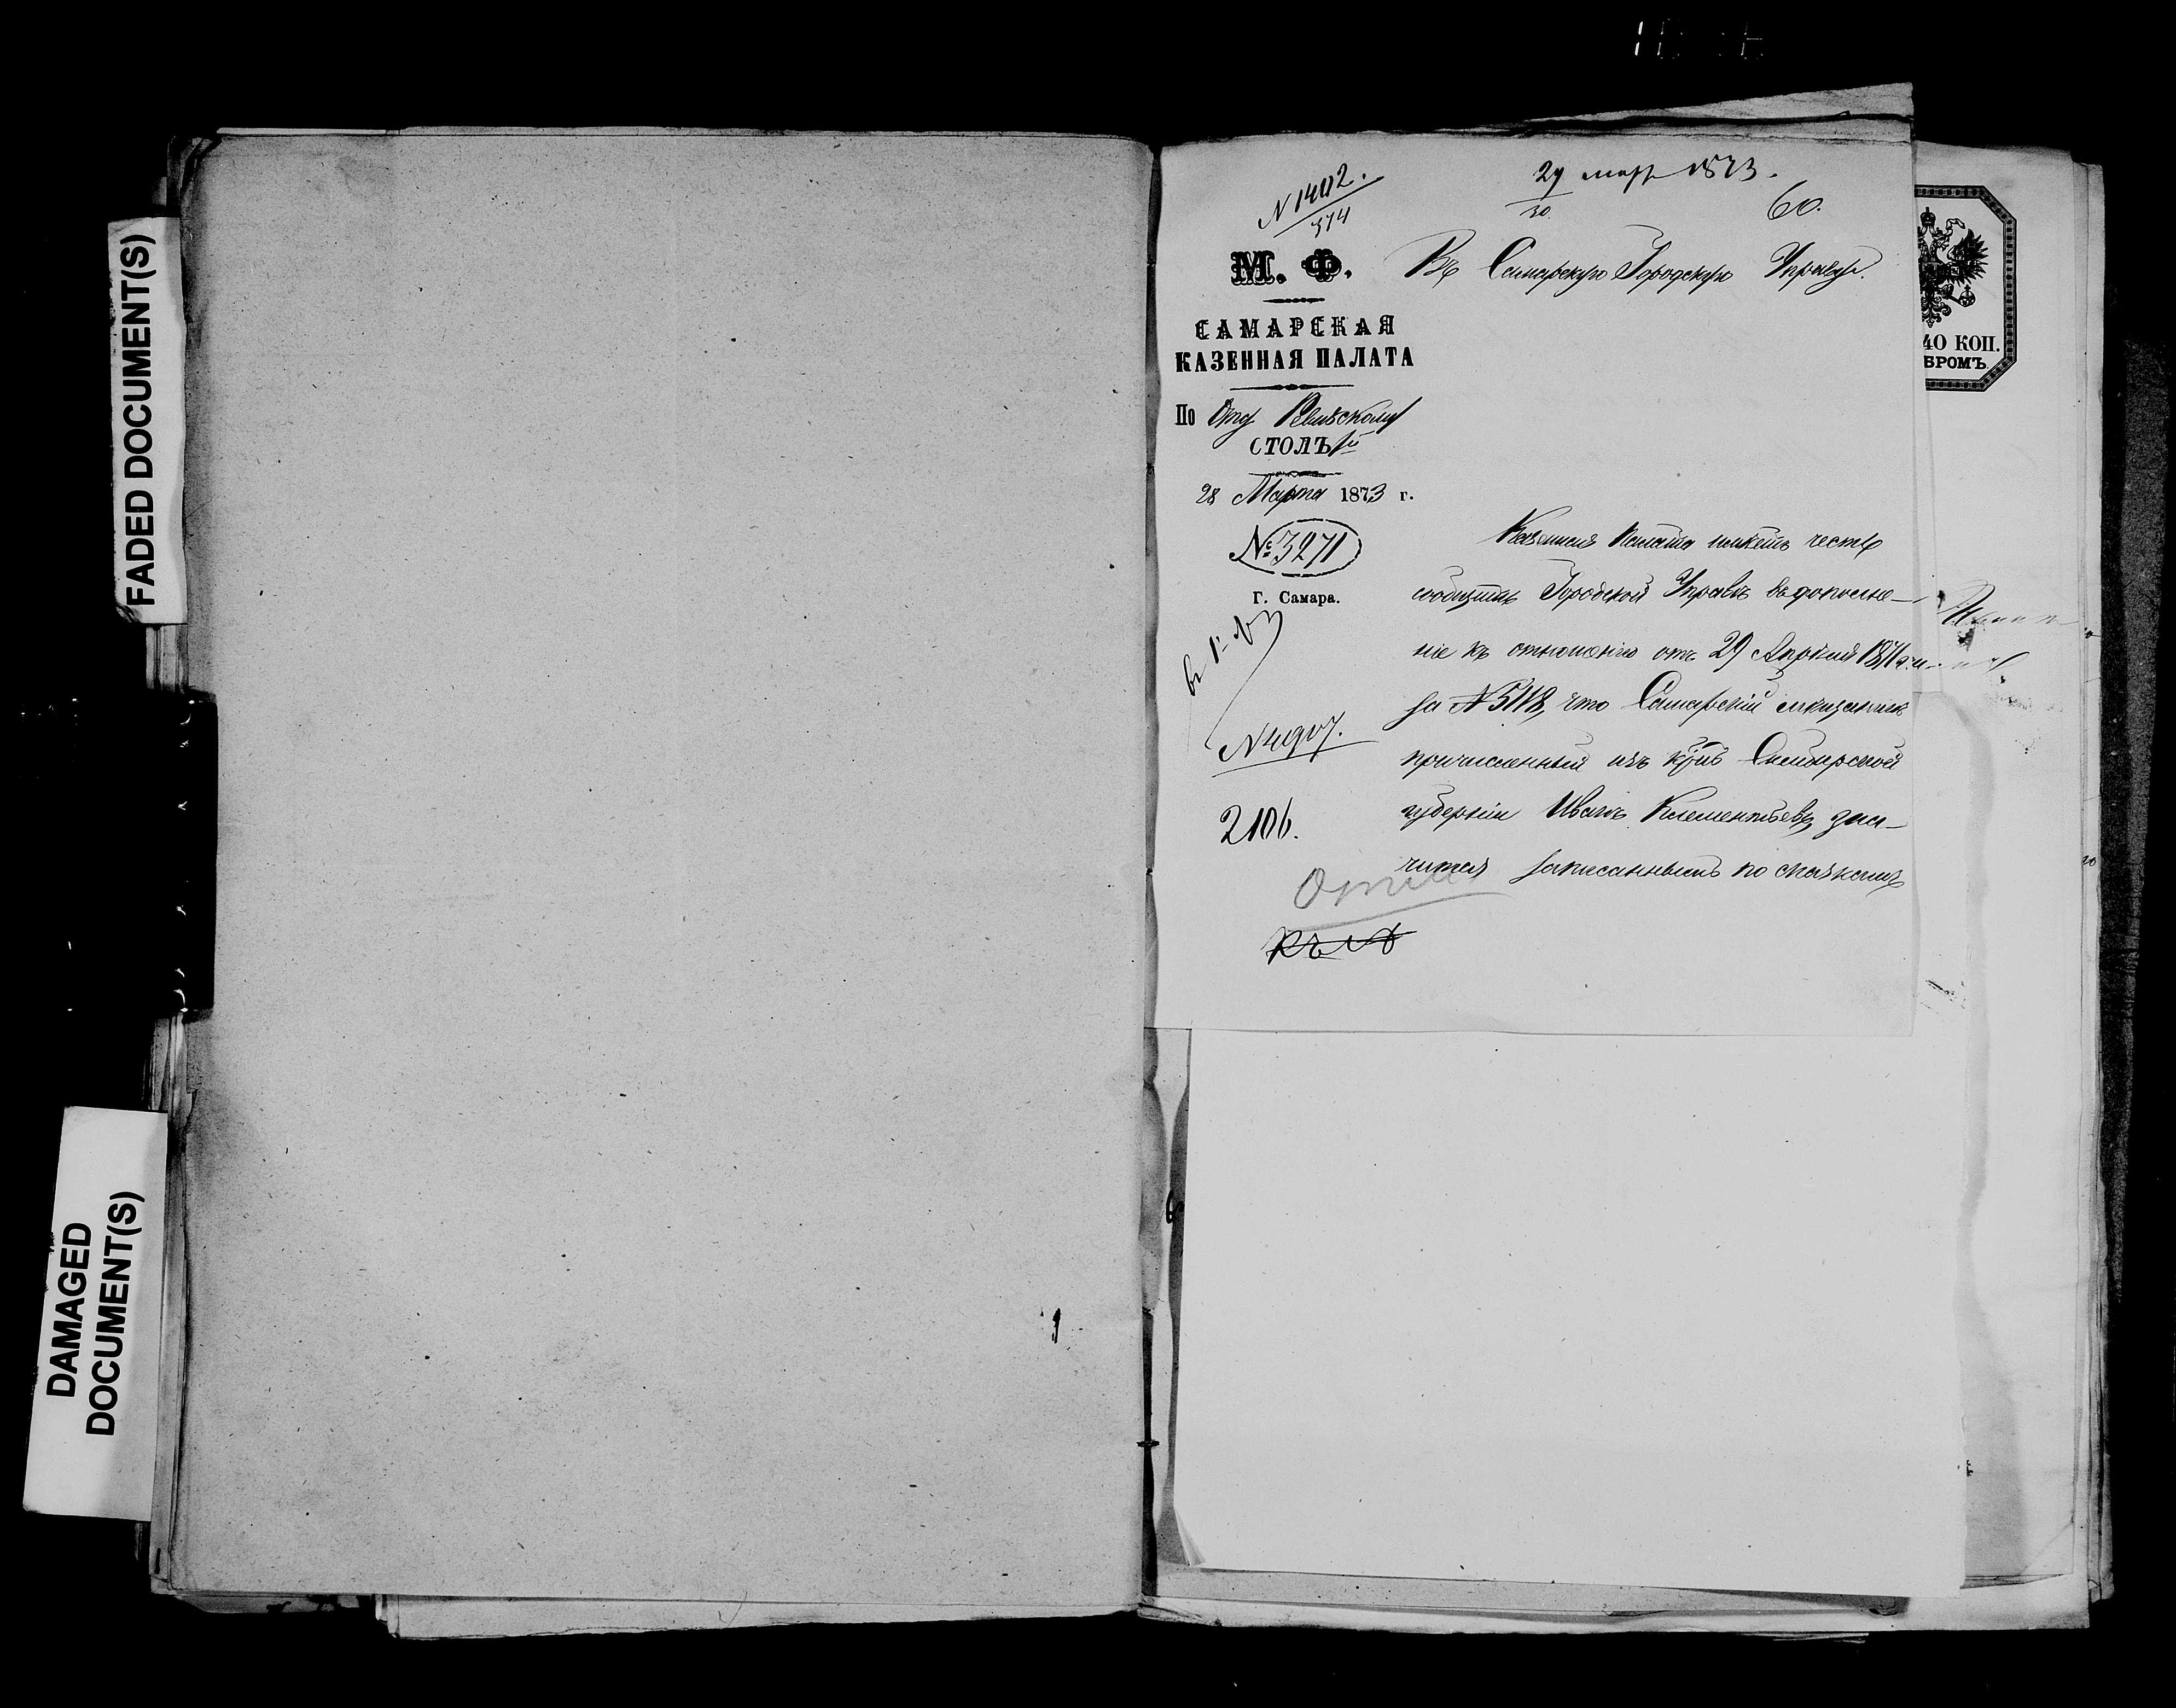 FADED DOCUMENT(S)
DAMAGED
DOCUMENT(S)
N 1402.
374
29 мар 1873.
30
60.
М. Ф.
САМАРСКАЯ
КАЗЕННАЯ ПАЛАТА
По Отд Ревизскому
СТОЛЪ 1й
28 Марта 1873 г.
№ 3271
Г. Самара.
N 4907.
2106.
Въ Самарскую Городскую Управу.
Казенная Палата имѣетъ честь
сообщить Городской Управѣ въ дополне-
ніе къ отношенію отъ 29 Апрѣля 1871 г.
за N 5118, что Самарскій мѣщанинъ
причисленный изъ кр҃нъ Симбирской
губерніи Иванъ Клементьевъ зна-
чится записаннымъ по сказкамъ
40 КОП.
БРОМЪ.